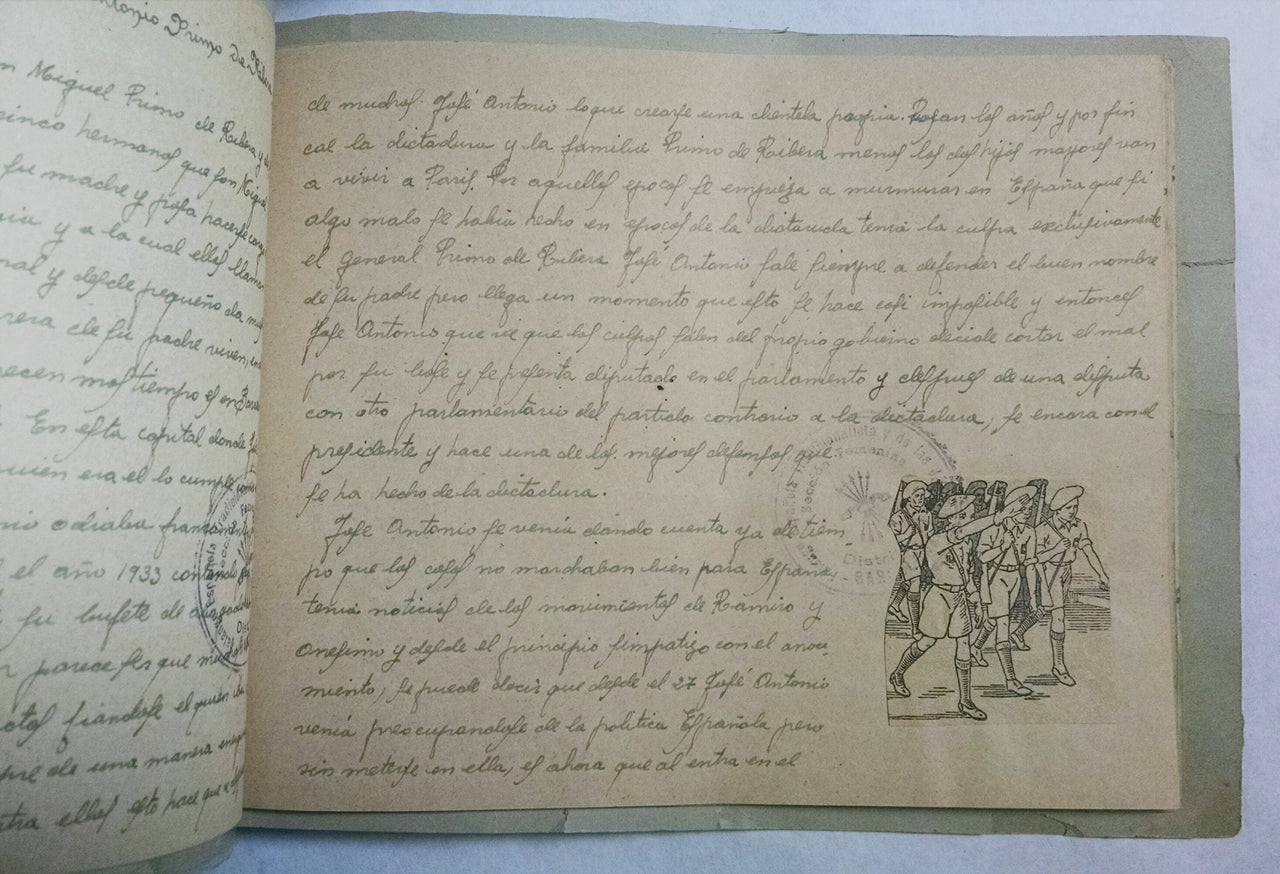 ntonio Primo de Ribera
n Miguel Primo de Ribera y
cinco hermanos que son Miguel
su madre y pasa hacerse cargo
y a la cual ellos llaman
y desde pequeño da
rera de su padre viven,
recen mas tiempo es en
En esta capital donde
quien era el lo cumple
nio odiaba
el año 1933 con
su bufete de abogado
parece ser que
fiandose el quien
pre de una manera
ntra ellos esto hace que
de mudros. José Antonio logue crearse una clientela propia. Pasan los años y por fin
cal la dictadura y la familia Primo de Ribera menos los dos hijos mayores van
a vivir a Paris. Por aquellas epocas se empieza a murmurar en España que si
algo malo se habia hecho en epocas de la dictaucla tenia la culpa exclusivamente
el General Primo de Ribera José Antonio sale siempre a defender el buen nombre
de su padre pero llega un momento que esto se hace casi imposible y entonces
Jose Antonio que ve que las culpas salen del propio gobierno decide cortar el mal
por su base y se presenta diputado en el parlamento y despues de una disputa
con otro parlamentario del partido contrario a la dictadura, se encara con el
presidente y hace una de las mejores defensas que
se ha hecho de la dictadura.
José Antonio se venia dando cuenta ya de tiem
po que las cosas no marchaban bien para España,
tenia noticias de los movimientos de Ramiro y
Onesimo y desde el principio simpatizo con el
miento, se puede decir que desde el 27 José Antonio
venia preocupandose de la politica Española pero
sin meterse en ella, es ahora que al entra en el
Española Tradicionalista
Tradicionalista y de las J
Sección Femenina